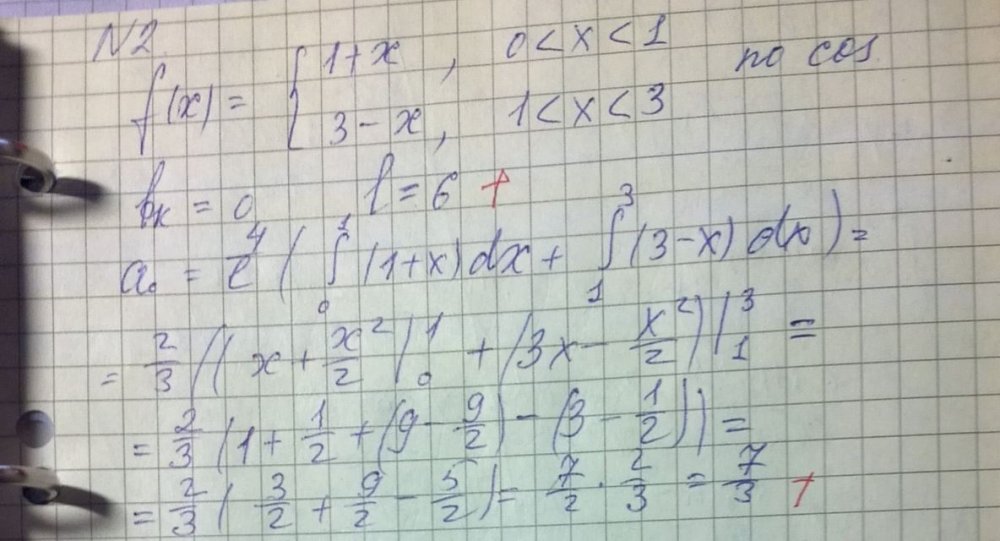 N2
f(x) = { 1+x, 0<x<1
3-x, 1<x<3 по cos
bк = 0 l = 6 +
a₀ = 4/l (∫₀¹ (1+x)dx + ∫₁³ (3-x)dx) =
= 2/3 ((x + x²/2)|₀¹ + (3x - x²/2)|₁³ =
= 2/3 (1 + 1/2 + (9 - 9/2) - (3 - 1/2)) =
= 2/3 (3/2 + 9/2 - 5/2) = 7/2 · 2/3 = 7/3 +